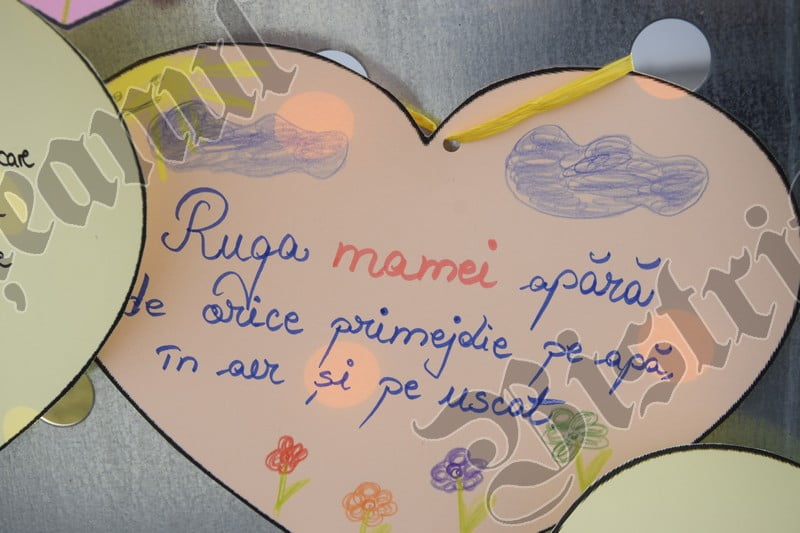 Ruga mamei apără
de orice primejdie pe apă,
în aer și pe uscat.
oare
e